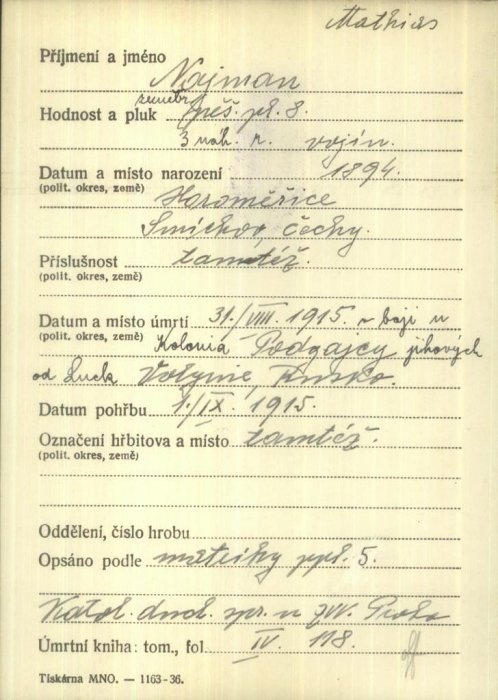 Mathias
Příjmení a jméno
Najman
Hodnost a pluk zeměbr. pěš. pl. 8.
3 náh. r. vojín.
Datum a místo narození 1894.
(polit. okres, země) Horoměřice
Smíchov, Čechy.
Příslušnost tamtéž.
(polit. okres, země)
Datum a místo úmrtí 31./VIII. 1915. v boji u
(polit. okres, země) Kolonia Podgajcy jihových
od Luck Volynie, Rusko.
Datum pohřbu 1./IX. 1915.
Označení hřbitova a místo tamtéž.
(polit. okres, země)
Oddělení, číslo hrobu
Opsáno podle matriky ppl. 5.
Katol. duch. spr. u Praha
Úmrtní kniha: tom., fol. IV. 118.
Tiskárna MNO. — 1163-36.